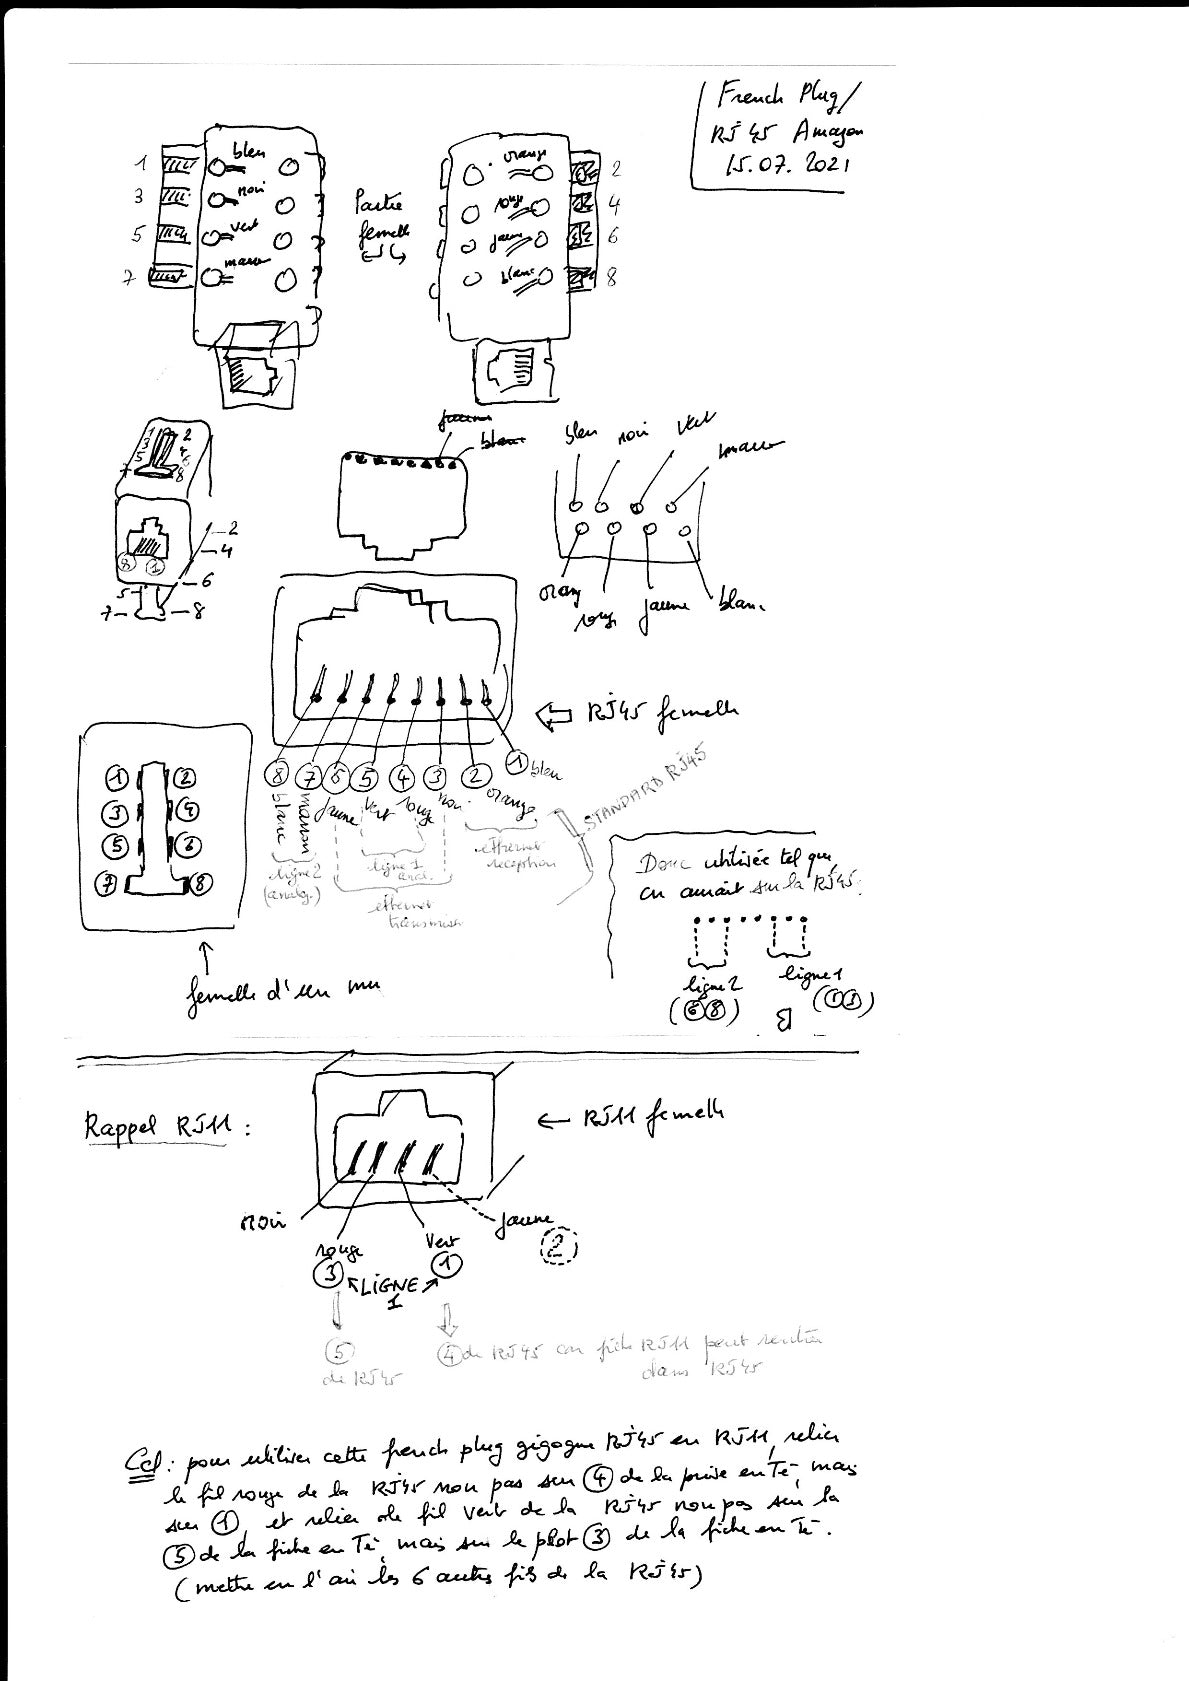 French Plug/
RJ45 Amazon
15.07.2021
1
3
5
7
bleu
noir
vert
marron
Partie
femelle
orange
rouge
jaune
blanc
2
4
6
8
1 2
3 4
5 6
7 8
8 1
2
4
6
5
7
8
jaune
blanc
bleu noir vert
marron
orang
rouge
jaune
blanc
RJ45 femelle
8 7 6 5 4 3 2 1 bleu
blanc marron jaune vert rouge noir orange
ligne 2
(analog.)
ligne 1
anal.
ethernet
reception
ethernet
transmission
STANDARD RJ45
1 2
3 4
5 6
7 8
femelle d'un mur
Donc utilisée tel que,
on aurait sur la RJ45:
ligne 2
(6 8)
ligne 1
(1 3)
Rappel RJ11 :
RJ11 femelle
noir
rouge
3
vert
1
LIGNE
1
jaune
2
5
de RJ45
4 de RJ45 car fiche RJ11 peut rentrer
dans RJ45
Ccl : pour utiliser cette french plug gigogne RJ45 en RJ11, relier
le fil rouge de la RJ45 non pas sur 4 de la prise en Té, mais
sur 1, et relier le fil vert de la RJ45 non pas sur la
5 de la fiche en Té, mais sur le plot 3 de la fiche en Té.
(mettre en l'air les 6 autres fils de la RJ45)